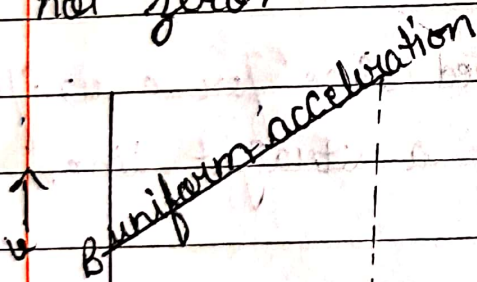 not zero.
uniform acceleration
v
B